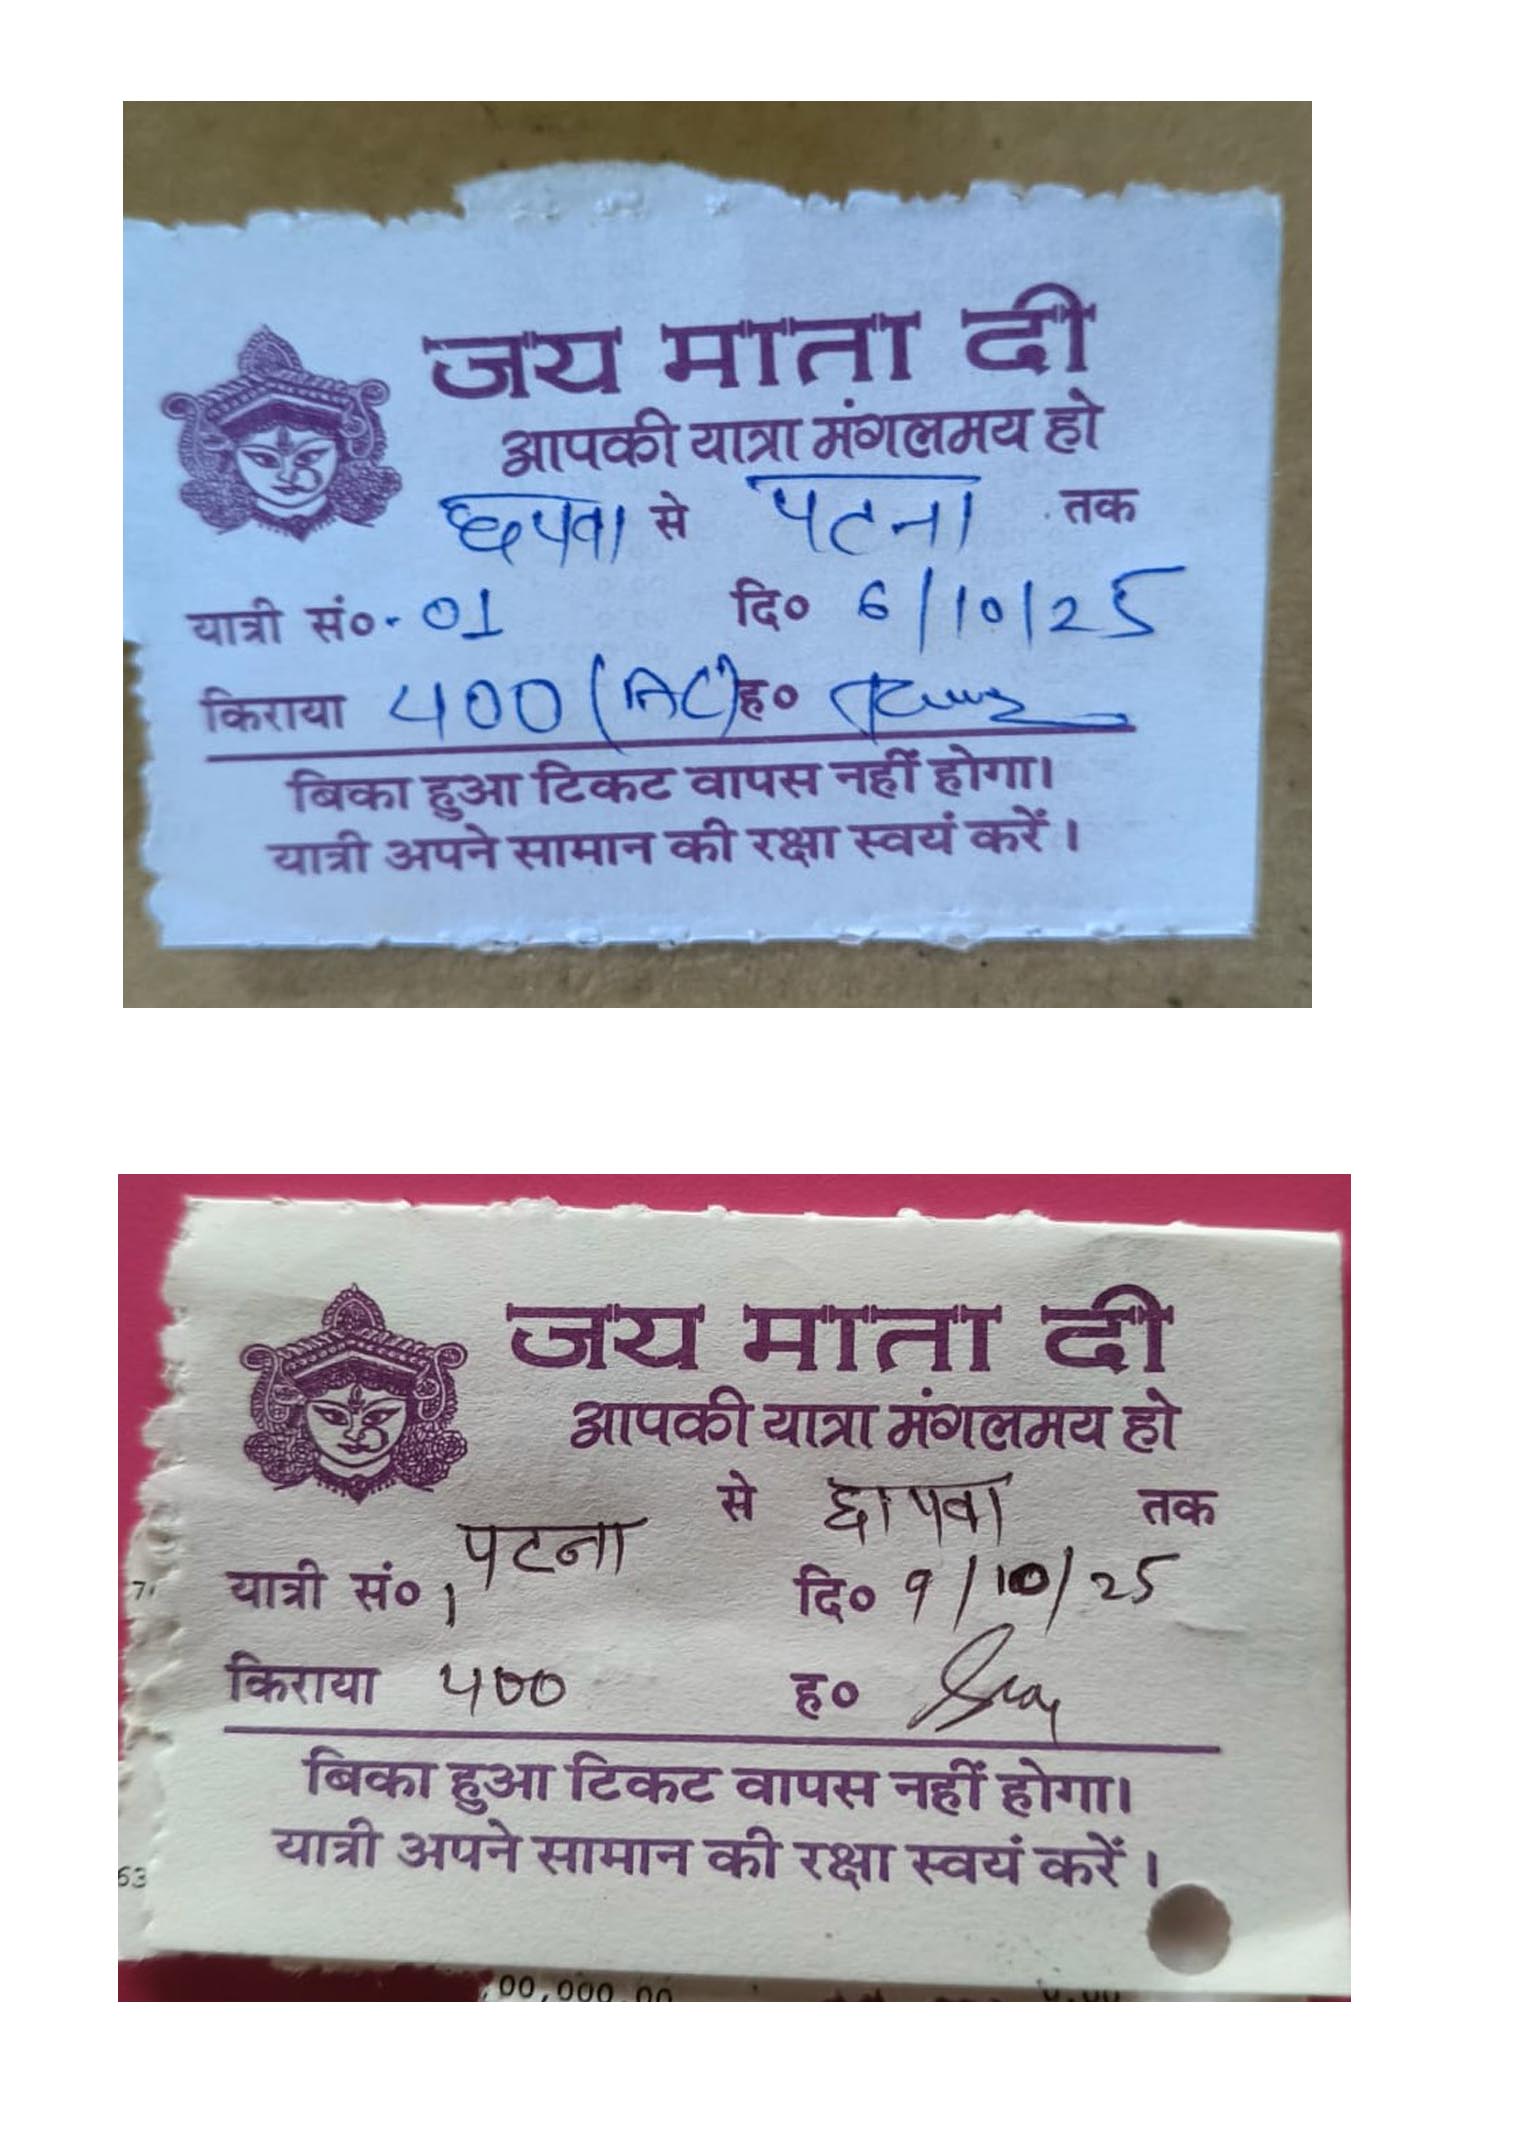 जय माता दी
आपकी यात्रा मंगलमय हो
छपवा से पटना तक
यात्री सं०- 01 दि० 6/10/25
किराया 400 (AC) ह०
बिका हुआ टिकट वापस नहीं होगा।
यात्री अपने सामान की रक्षा स्वयं करें।
जय माता दी
आपकी यात्रा मंगलमय हो
पटना से छपवा तक
यात्री सं० 1 दि० 9/10/25
किराया 400 ह०
बिका हुआ टिकट वापस नहीं होगा।
यात्री अपने सामान की रक्षा स्वयं करें।
00,000.00